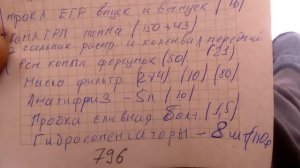 прокл ЕГР впуск и выпуск / 10
ГРМ помпа (150+43)
2 сальник распр. и коленвал передний
Рем компл форсунок (50) (21)
Масло фильтр (2x4) (10) (80)
Анатифриз - 5л (10)
Пробка сливная болт. (1,5)
Гидросопенсаторы - 8 шт/110р
796